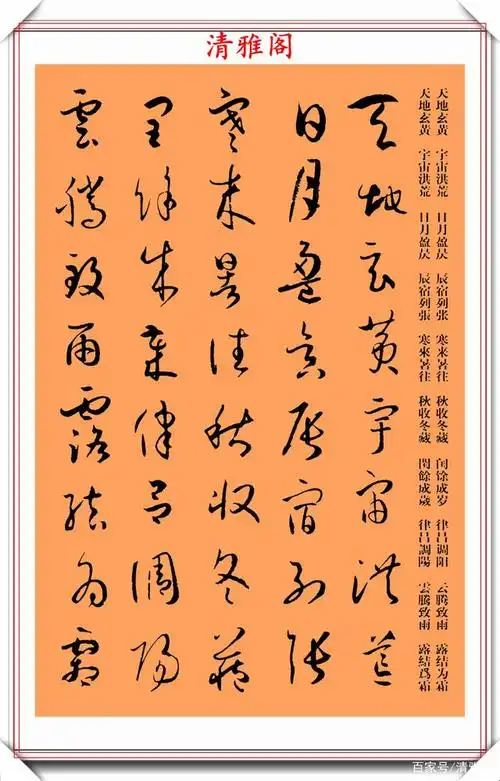 清雅阁
天地玄黄 宇宙洪荒 日月盈昃 辰宿列张 寒來暑往 秋收冬藏 闰馀成岁 律吕调阳 云腾致雨 露结为霜
天地玄黃 宇宙洪荒 日月盈昃 辰宿列張 寒來暑往 秋收冬藏 閏餘成歲 律呂調陽 雲騰致雨 露結爲霜
天地玄黃宇宙洪荒
日月盈昃辰宿列張
寒來暑往秋收冬藏
閏餘成歲律呂調陽
雲騰致雨露結為霜
百家号/清雅